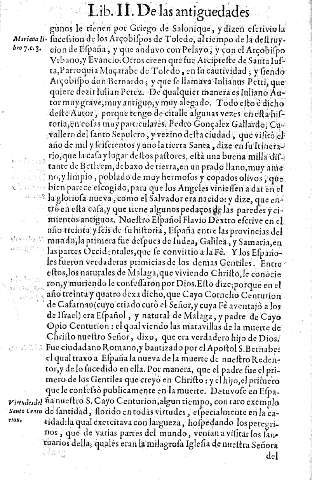 Lib. II. De las antiguedades
gunos le tienen por Griego de Salonique, y dizen escriviò la
Mariana li-
bro 7. c. 3.
sucession de los Arçobispos de Toledo, al tiempo de la destruy-
cion de España, y que anduvo con Pelayo; y con el Arçobispo
Vrbano, y Evancio. Otros creen que fue Arcipreste de Santa Ius-
ta, Parroquia Maçarabe de Toledo, en su cautividad; y siendo
Arçobispo don Bernardo; y que se llamava Iulianus Petri, que
quiere dezir Iulian Perez. De qualquier manera es Iuliano Au-
tor muy grave, muy antiguo, y muy alegado. Todo esto è dicho
deste Autor, porque tengo de citalle algunas vezes en esta his-
toria, en cosas muy particulares. Pedro Gonçalez Gallardo, Ca-
vallero del santo Sepulcro, y vezino desta ciudad, que visitò el
año de mil y seiscentos y uno la tierra Santa, dize en su Itinera-
rio, que la casa y lugar de los pastores, està una buena milla dis-
tante de Bethlem, debaxo de tierra, en un prado llano, muy ame
no, y limpio, poblado de muy hermosos y copados olivos, que
bien parece escogido, para que los Angeles viniessen a dar en el
la gloriosa nueva, como el Salvador era nacido: y dize, que en-
trò en esta casa, y que tiene algunos pedaços de las paredes y ci-
mientos antiguos. Nuestro Español Flavio Dextro escrive en el
año treinta y seis de su historia, España entre las provincias del
mundo, la primera fue despues de Iudea, Galilea, y Samaria, en
las partes Occidentales, que se convirtiò a la Fè. Y los Españo-
les fueron verdaderas primicias de los demas Gentiles. Entre
estos, los naturales de Malaga, que viviendo Christo, le conòcie-
ron, y muriendo le confessaron por Dios. Esto dize; porque en el
año treinta y quatro dexa dicho, que Cayo Cornelio Centurion
de Cafarnau (cuyo criado curò el Señor, y cuya Fè aventajò a los
de Israel) era Español, y natural de Malaga, y padre de Cayo
Opio Centurion: el qual viendo las maravillas de la muerte de
Christo nuestro Señor, dixo, que era verdadero hijo de Dios.
Fue ciudadano Romano, y bautizado por el Apostol S. Bernabe:
el qual traxo a España la nueva de la muerte de nuestro Reden-
tor, y de lo sucedido en ella. Por manera, que el padre fue el pri-
mero de los Gentiles que creyò en Christo: y el hijo, el primero
que le confessò publicamente en la muerte. Detuvose en Espa-
Virtudes del
Santo Centu
rion.
ña nuestro S. Cayo Centurion, algun tiempo, con raro exemplo
de santidad, florido en todas virtudes, especialmente en la ca-
ridad: la qual exercitava con largueza, hospedando los peregri-
nos, que de varias partes del mundo, venian a visitar los san-
tuarios della, quales eran la milagrosa Iglesia de nuestra Señora
del